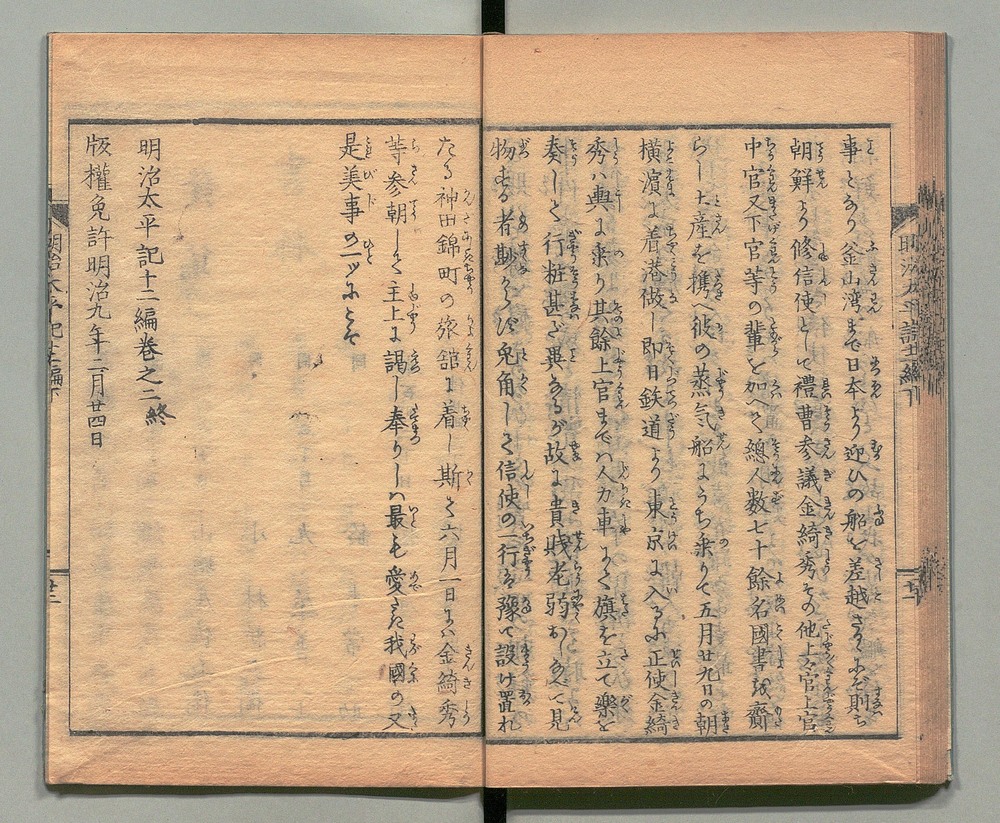 事とあり釜山湾まで日本より迎ひの船を差越さるゝにぞ則ち
朝鮮より修信使として禮曹参議金綺秀その他上々官上官
中官又下官等の輩を加へて總人数七十餘名國書を齎
らし土産を携へ彼の蒸気船にうち乗りて五月廿九日の朝
横濱に着港做し即日鉄道より東京に入るに正使金綺
秀ハ輿に乗り其餘上官までハ人力車にて旗を立て樂を
奏して行粧甚だ異なるが故に貴賎老弱おしなべて見
物する者尠からず兎角して信使の一行ハ豫て設け置れ
たる神田錦町の旅舘に着し斯て六月一日にハ金綺秀
等参朝して主上に謁し奉りしハ最も愛たき我國の又
是美事の一ツにこそ
明治太平記十二編巻之二終
版權免許明治九年二月廿四日
明治太平記十二編下